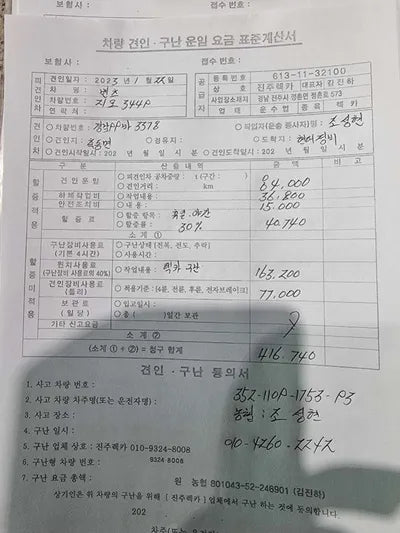 보험사 : 접수번호 :
차량 견인·구난 운임 요금 표준계산서
견인일자 : 2023 / 1 / 22 일
차 명 : 벤츠
차량번호 : 지모 3448
연 락 처 :
등록번호 613-11-32100
상 호 진주렉카 대표자 김진하
사업장소재지 경남 진주시 경충면 정촌로 573
업 태 운수업 종목 렉카
차량번호 : 3378
작업자(운송 종사자)명 : 조성현
견인지 : 경유지 : 도착지 : 현대정비
견인시작일시 : 202 년 월 일 시 분 견인도착일시 : 202 년 월 일 시 분
구 분 산 출 내 역 금 액 비 고
견인운임 피견인차 공차중량 : t (구간 : )
견인거리 : km 84,000
하체작업비 작업내용 : 36,800
안전조치비 내 용 : 15,000
할증료 할증 항목 : 야간
할증률 : 30% 40,740
소 계 ①
구난장비사용료 (기본 4시간) 구난상태 [전복, 전도, 추락]
사용시간 :
윈치사용료 (구난장비 사용료의 40%) 작업내용 : 렉카 구난 163,200
견인장비사용료 (돌리) 적용기준 : [4륜, 전륜, 후륜, 전자브레이크] 77,000
보관료 (일당) 입고일시 :
총 ( )일간 보관
기타 신고요금
소 계 ②
(소계 ① + ②) = 청구 합계 416,740
견인·구난 동의서
1. 사고 차량 번호 : 352-1108-1753-83
2. 사고 차량 차주명(또는 운전자명) : 농협 : 조성현
3. 사고 장소 :
4. 구난 일시 : 010-4260-2242
5. 구난 업체 상호 : 진주렉카 010-9324-8008
6. 구난형 차량 번호 : 9324 8008
7. 구난 요금 총액 : 원 농협 801043-52-246901 (김진하)
상기인은 위 차량의 구난을 위해 [진주렉카] 업체에서 구난 하는 것에 동의합니다.
202
차주(또는 운전자)